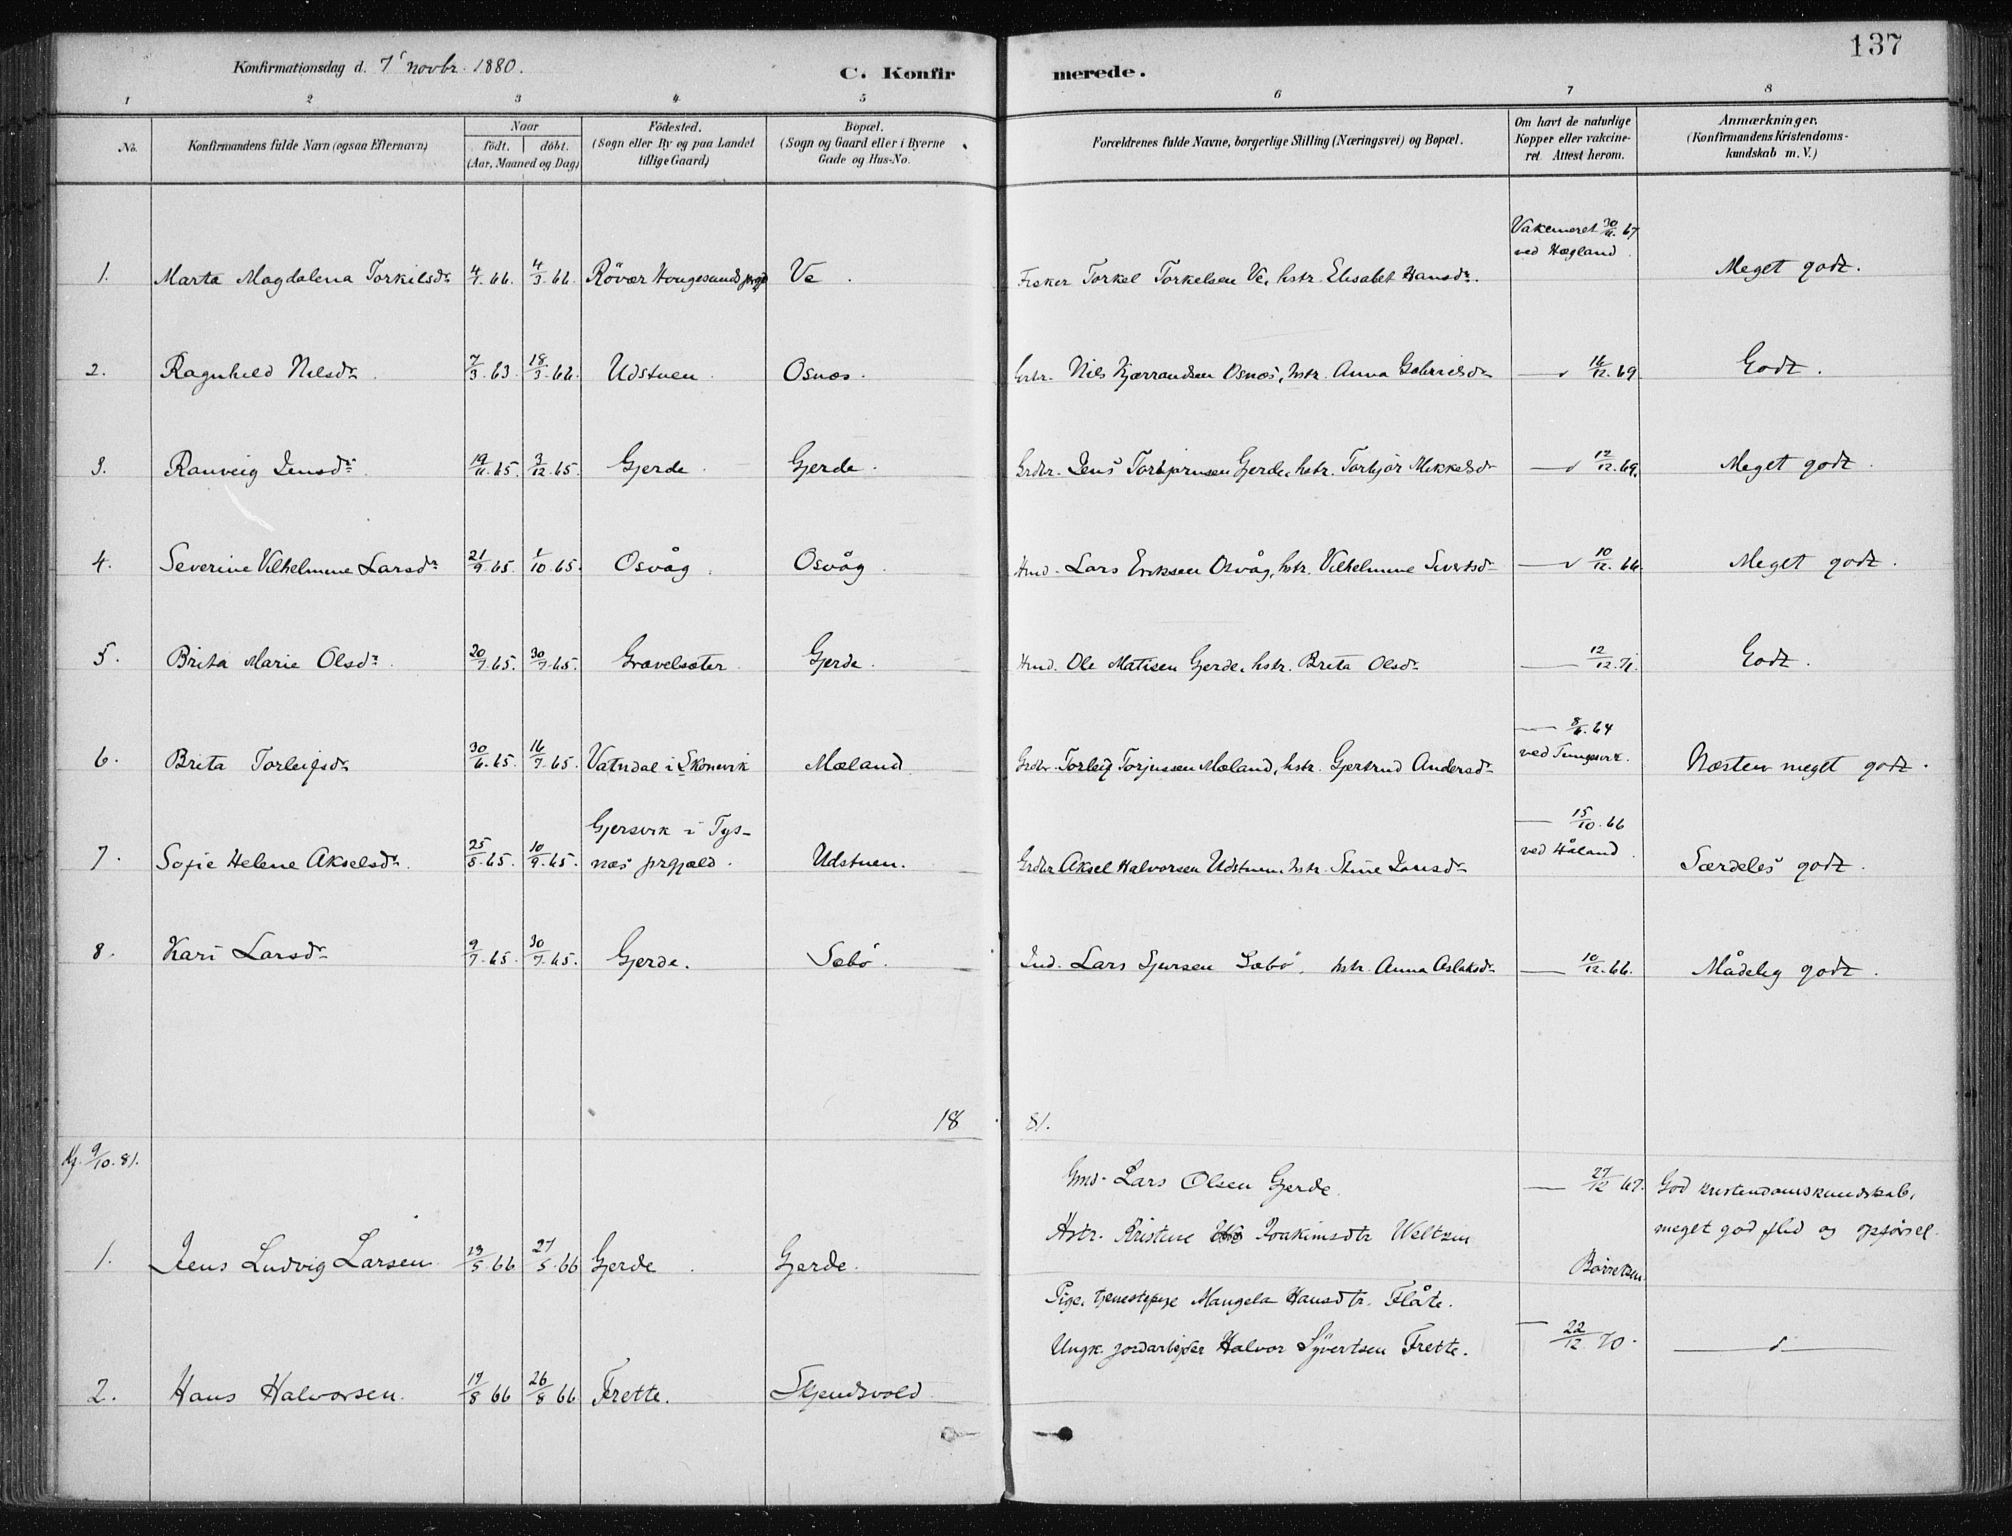 137
Konfirmationsdag d. 7' novbr. 1880.
C. Konfirmerede.
1 2 3 4 5 6 7 8
No.
Konfirmandens fulde Navn (ogsaa Efternavn)
Naar
født. døbt.
(Aar, Maaned og Dag)
Fødested.
(Sogn eller By og paa Landet
tillige Gaard)
Bopæl.
(Sogn og Gaard eller i Byerne
Gade og Hus-No.
Forældrenes fulde Navne, borgerlige Stilling (Næringsvei) og Bopæl.
Om havt de naturlige
Kopper eller vakcine-
ret. Attest herom.
Anmærkninger.
(Konfirmandens Kristendoms-
kundskab m. V.)
Vakcineret 30/11. 67
ved Hægland.
1. Marta Magdalena Torkilsdr 4/1. 66. 4/3. 66. Røvær Hougesunds prgjd Ve. Fisker Torkel Torkelsen Ve, hstr. Elisabet Hansdr. Meget godt.
2. Ragnhild Nilsdr. 7/3. 63. 18/3. 66. Udstuen. Osnæs. Nils Kjærrandsen Osnæs, hstr. Anna Gabrielsdr 16/12. 69. Godt.
3. Ranveig Jensdr. 19/11. 65. 3/12. 65. Gjerde. Gjerde. Grdbr. Jens Torbjørnsen Gjerde, hstr. Torbjør Mikkelsdr 12/12. 69. Meget godt.
4. Severine Vilhelmine Larsdr 21/9. 65. 1/10. 65. Osvåg. Osvåg. Hmd. Lars Eriksen Osvåg, hstr. Vilhelmine Sivertsdr 10/12. 66. Meget godt.
5. Brita Marie Olsdr. 20/7. 65. 30/7. 65. Grævelsæter. Gjerde. Hmd. Ole Matisen Gjerde, hstr. Brita Olsdr 12/12. 71. Godt.
8/6. 64
ved Tungesvik.
6. Brita Torleifsdr 30/6. 65. 16/7. 65. Vatndal i Skonevik Mæland Grdbr. Torleif Torjussen Mæland, hstr. Gjertrud Andersdr Næsten meget godt.
Gjersvik i Tys-
15/10. 66
ved Håland.
7. Sofie Helene Akselsdr. 25/8. 65. 10/9. 65. næs prgjæld. Udstuen. Grdbr Aksel Halvorsen Udstuen, hstr. Stine Larsdr Særdeles godt.
8. Kari Larsdr 9/7. 65. 30/7. 65. Gjerde. Sæbø. Ind. Lars Sjursen Sæbø. hstr. Anna Aslaksdr 10/12. 66. Mådelig godt.
1881.
Kf. 9/10. 81.
Gmd. Lars Olsen Gjerde 27/12 67. God kristendomskundskab,
Hstr. Kristine Joakimsdtr Weltzin meget god flid og opførsel
1. Jens Ludvig Larsen 13/5 66 27/5 66 Gjerde. Gjerde. Børretzen.
Pige, tjenestepige Mangela Hansdtr. Flåte.
Ungk. jordarbeider Halvor Syvertsen Frette. 22/12 70.
2. Hans Halvorsen. 19/8 66 26/8 66 Frette. Skjendsvold